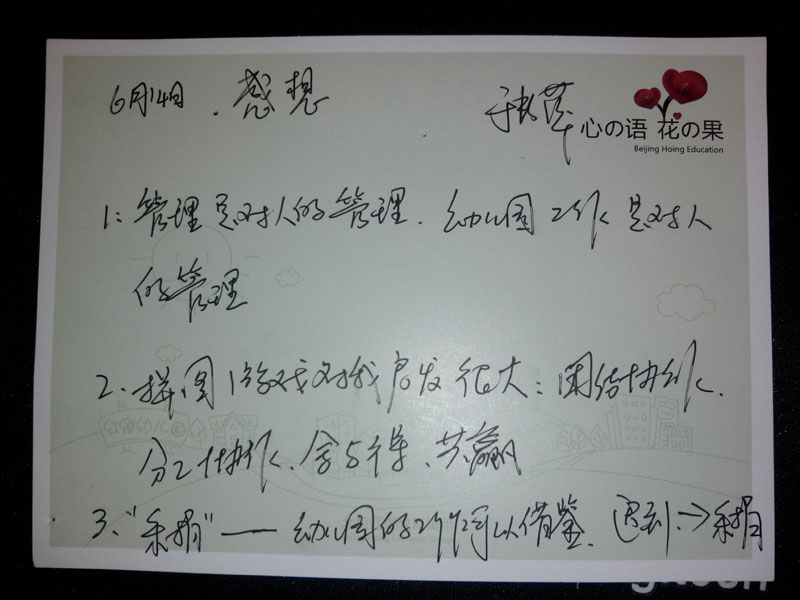 6月14日. 感想
心の语 花の果
Beijing Hoing Education
1: 管理是对人的管理. 幼儿园工作是对人
的管理
2. 拼图游戏对我启发很大: 团结协作.
分工协作. 舍与得. 共赢
3. " " —— 幼儿园的工作可以借鉴. 遇到. →